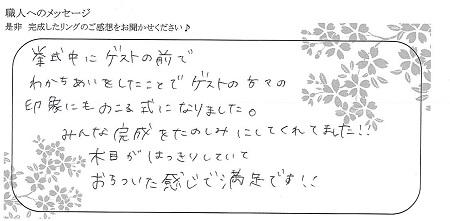 職人へのメッセージ
是非 完成したリングのご感想をお聞かせください♪
挙式中にゲストの前で
わかちあいをしたことでゲストの方々の
印象にものこる式になりました。
みんな完成をたのしみにしてくれてました!!
木目がはっきりしていて
おちついた感じで満足です!!